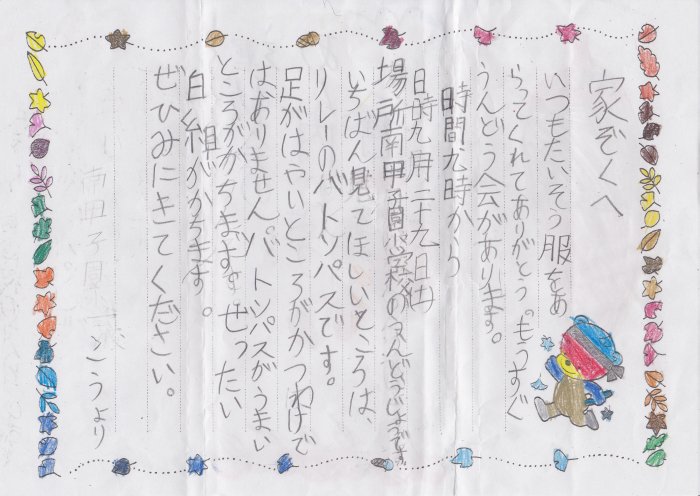 家ぞくへ
いつもたいそう服をあ
らってくれてありがとう。もうすぐ
うんどう会があります。
時間九時から
日時九月二十九日
場所南甲子園小学校のうんどうじょうです。
いちばん見てほしいところは、
リレーのバトンパスです。
足がはやいところがかつわけで
はありません。バトンパスがうまい
ところがかちます。ぜったい
白組がかちます。
ぜひみにきてください。
こうより